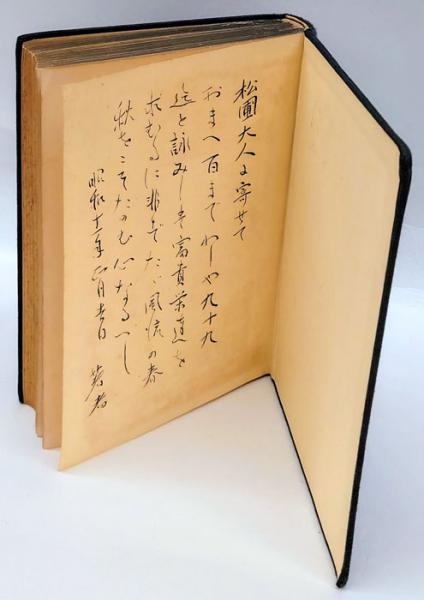 松圃大人に寄せて
おまへ百まで わしや九十九
迄と詠みしは富貴栄達を
求むるに非ず たゞ風流の春
秋をこそたのむ心なるへし
昭和十一年 月吉日 著者